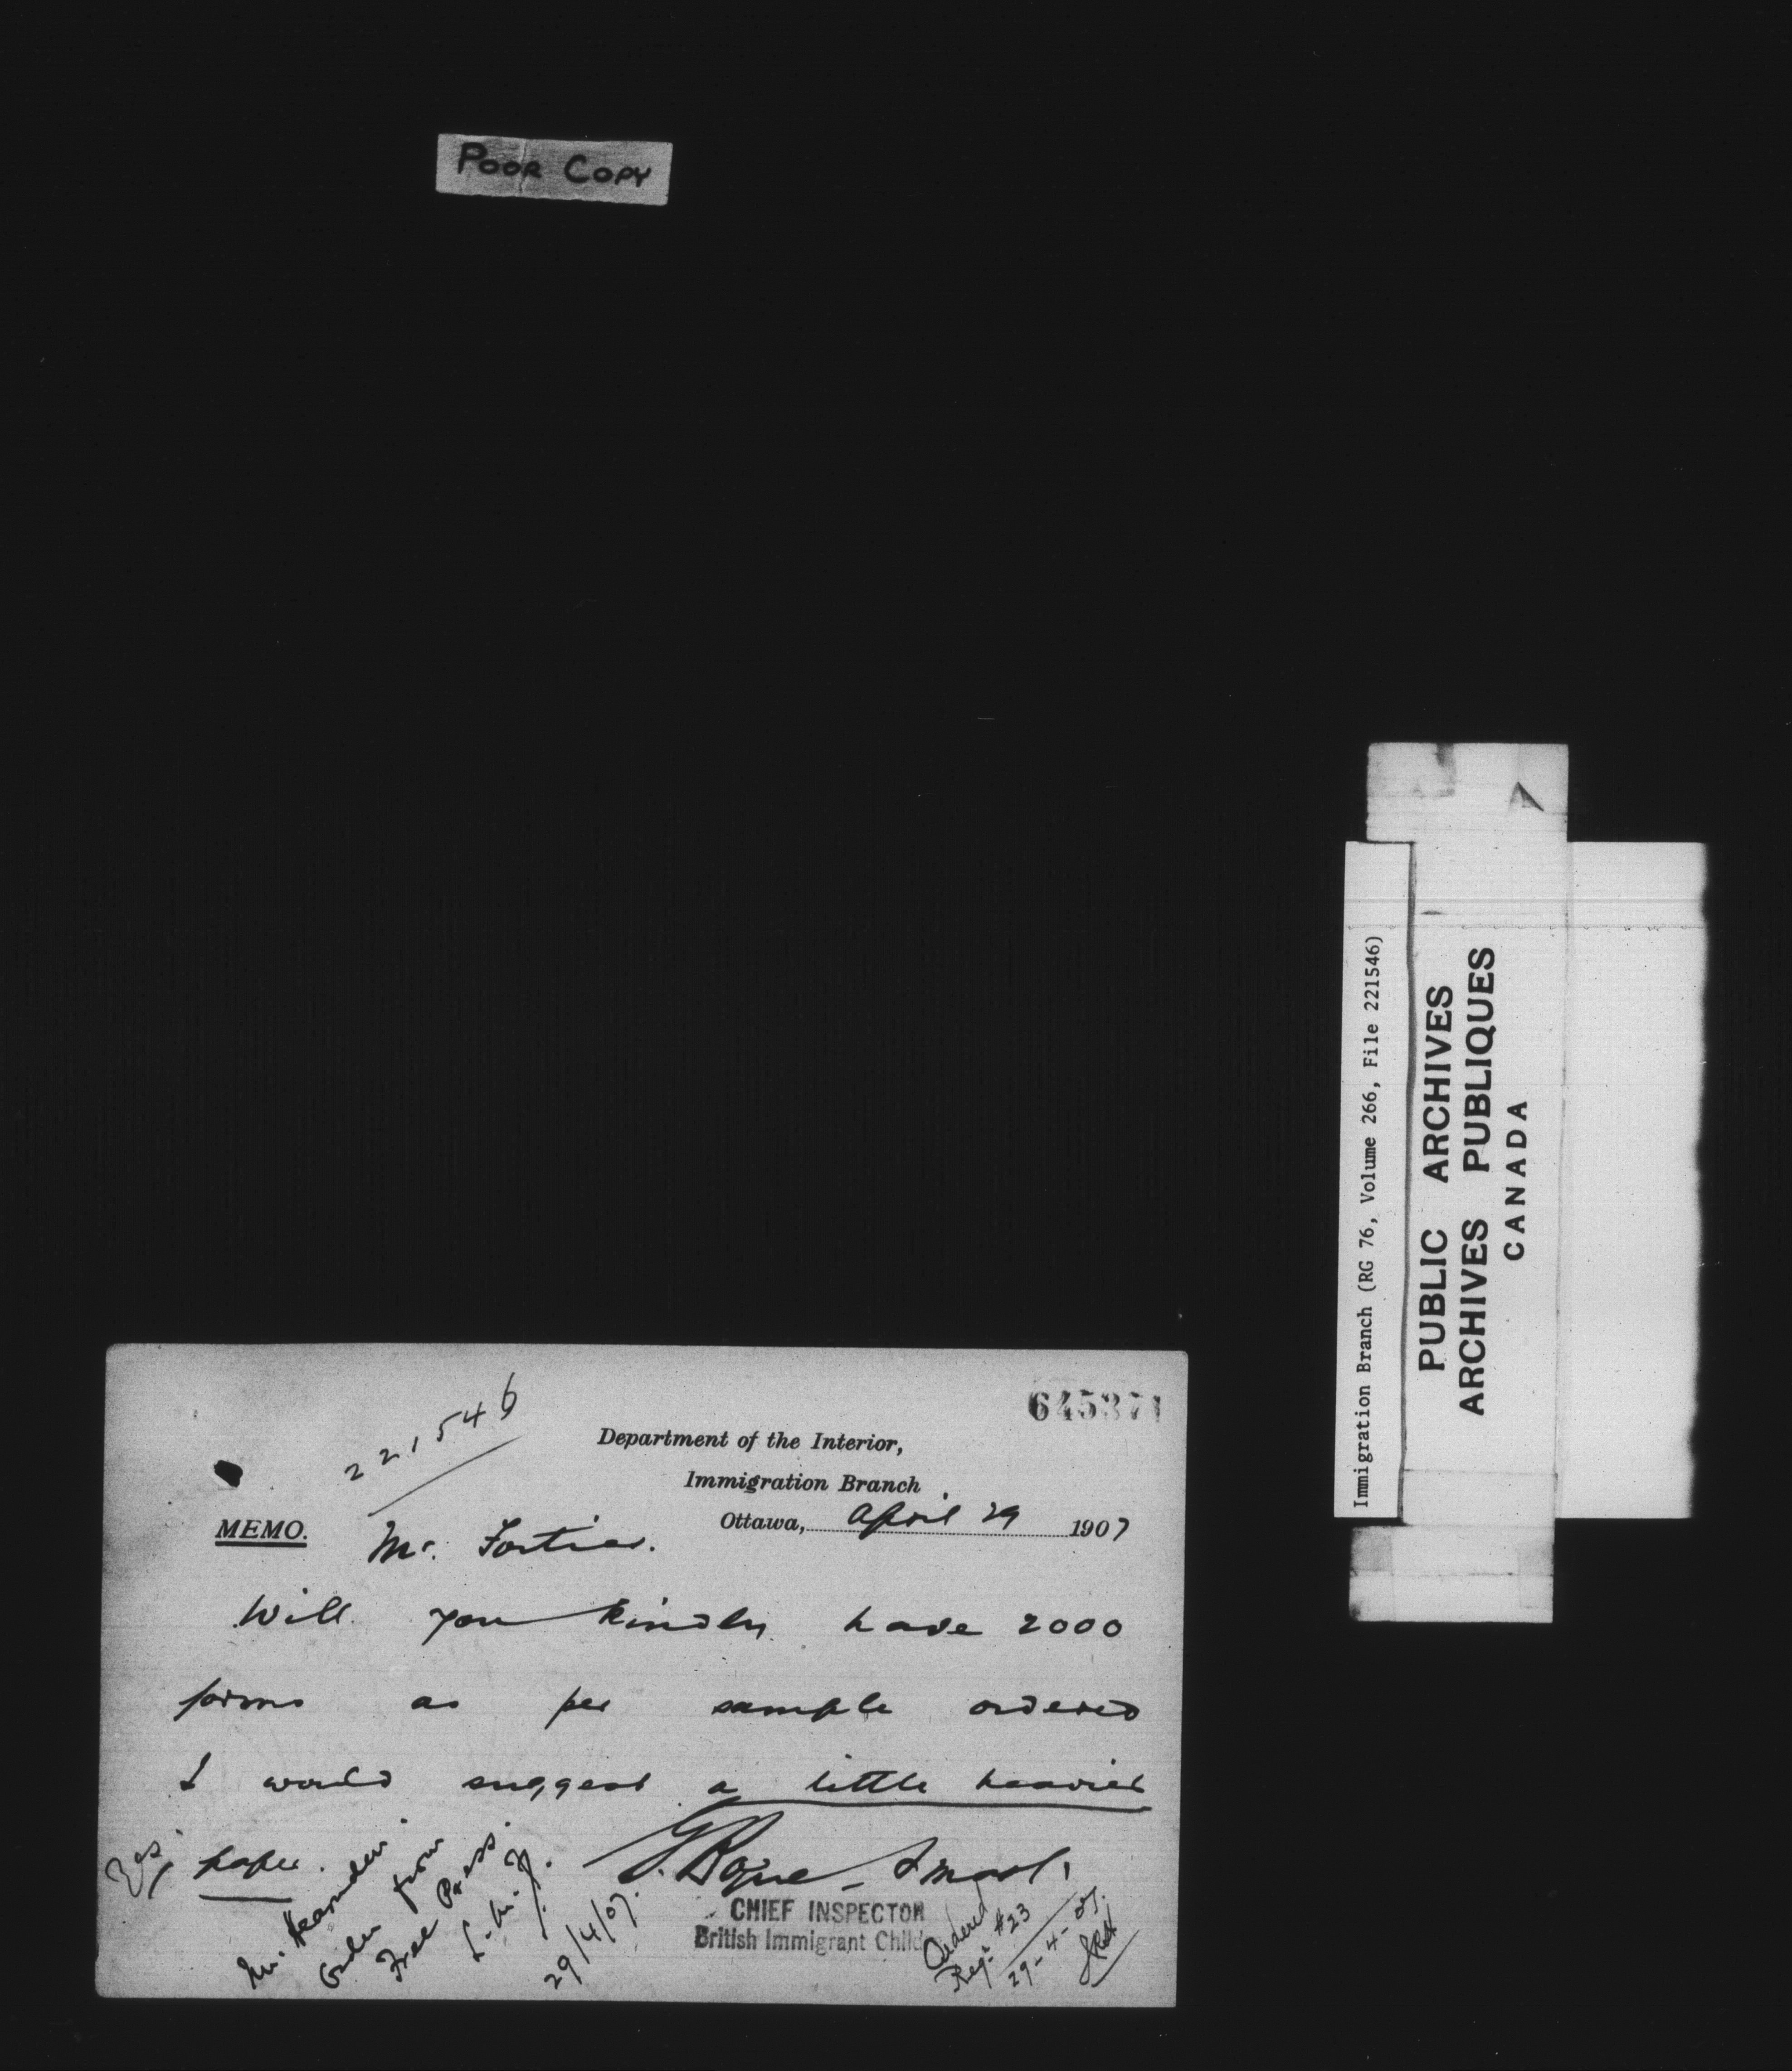 POOR COPY
Immigration Branch (RG 76, Volume 266, File 221546)
PUBLIC ARCHIVES
ARCHIVES PUBLIQUES
CANADA
645371
221546
Department of the Interior,
Immigration Branch
Ottawa, April 29 1907
MEMO.
Mr. Fortier.
Will you kindly have 2000
forms as per sample ordered
I would suggest a little heavier
paper.
G. Bogue Smart.
CHIEF INSPECTOR
British Immigrant Child
Yes,
Mr.
Order from
Free Press
L. M. F.
29/4/07.
Ordered
Reqn #23
29-4-07.